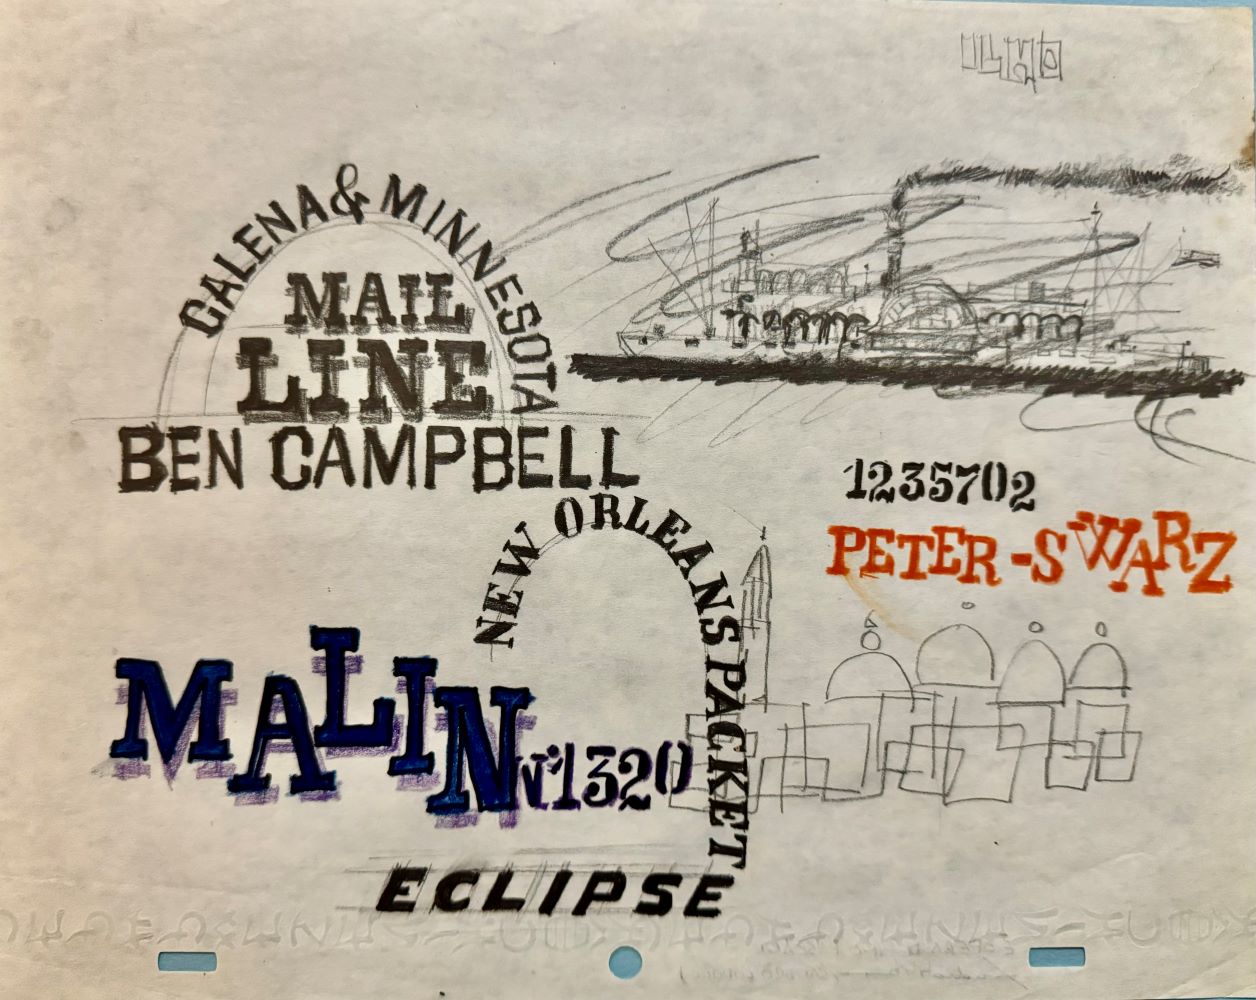 GALENA & MINNESOTA
MAIL
LINE
BEN CAMPBELL
1235702
PETER-SWARZ
NEW ORLEANS PACKET
MALIN Nº1320
ECLIPSE